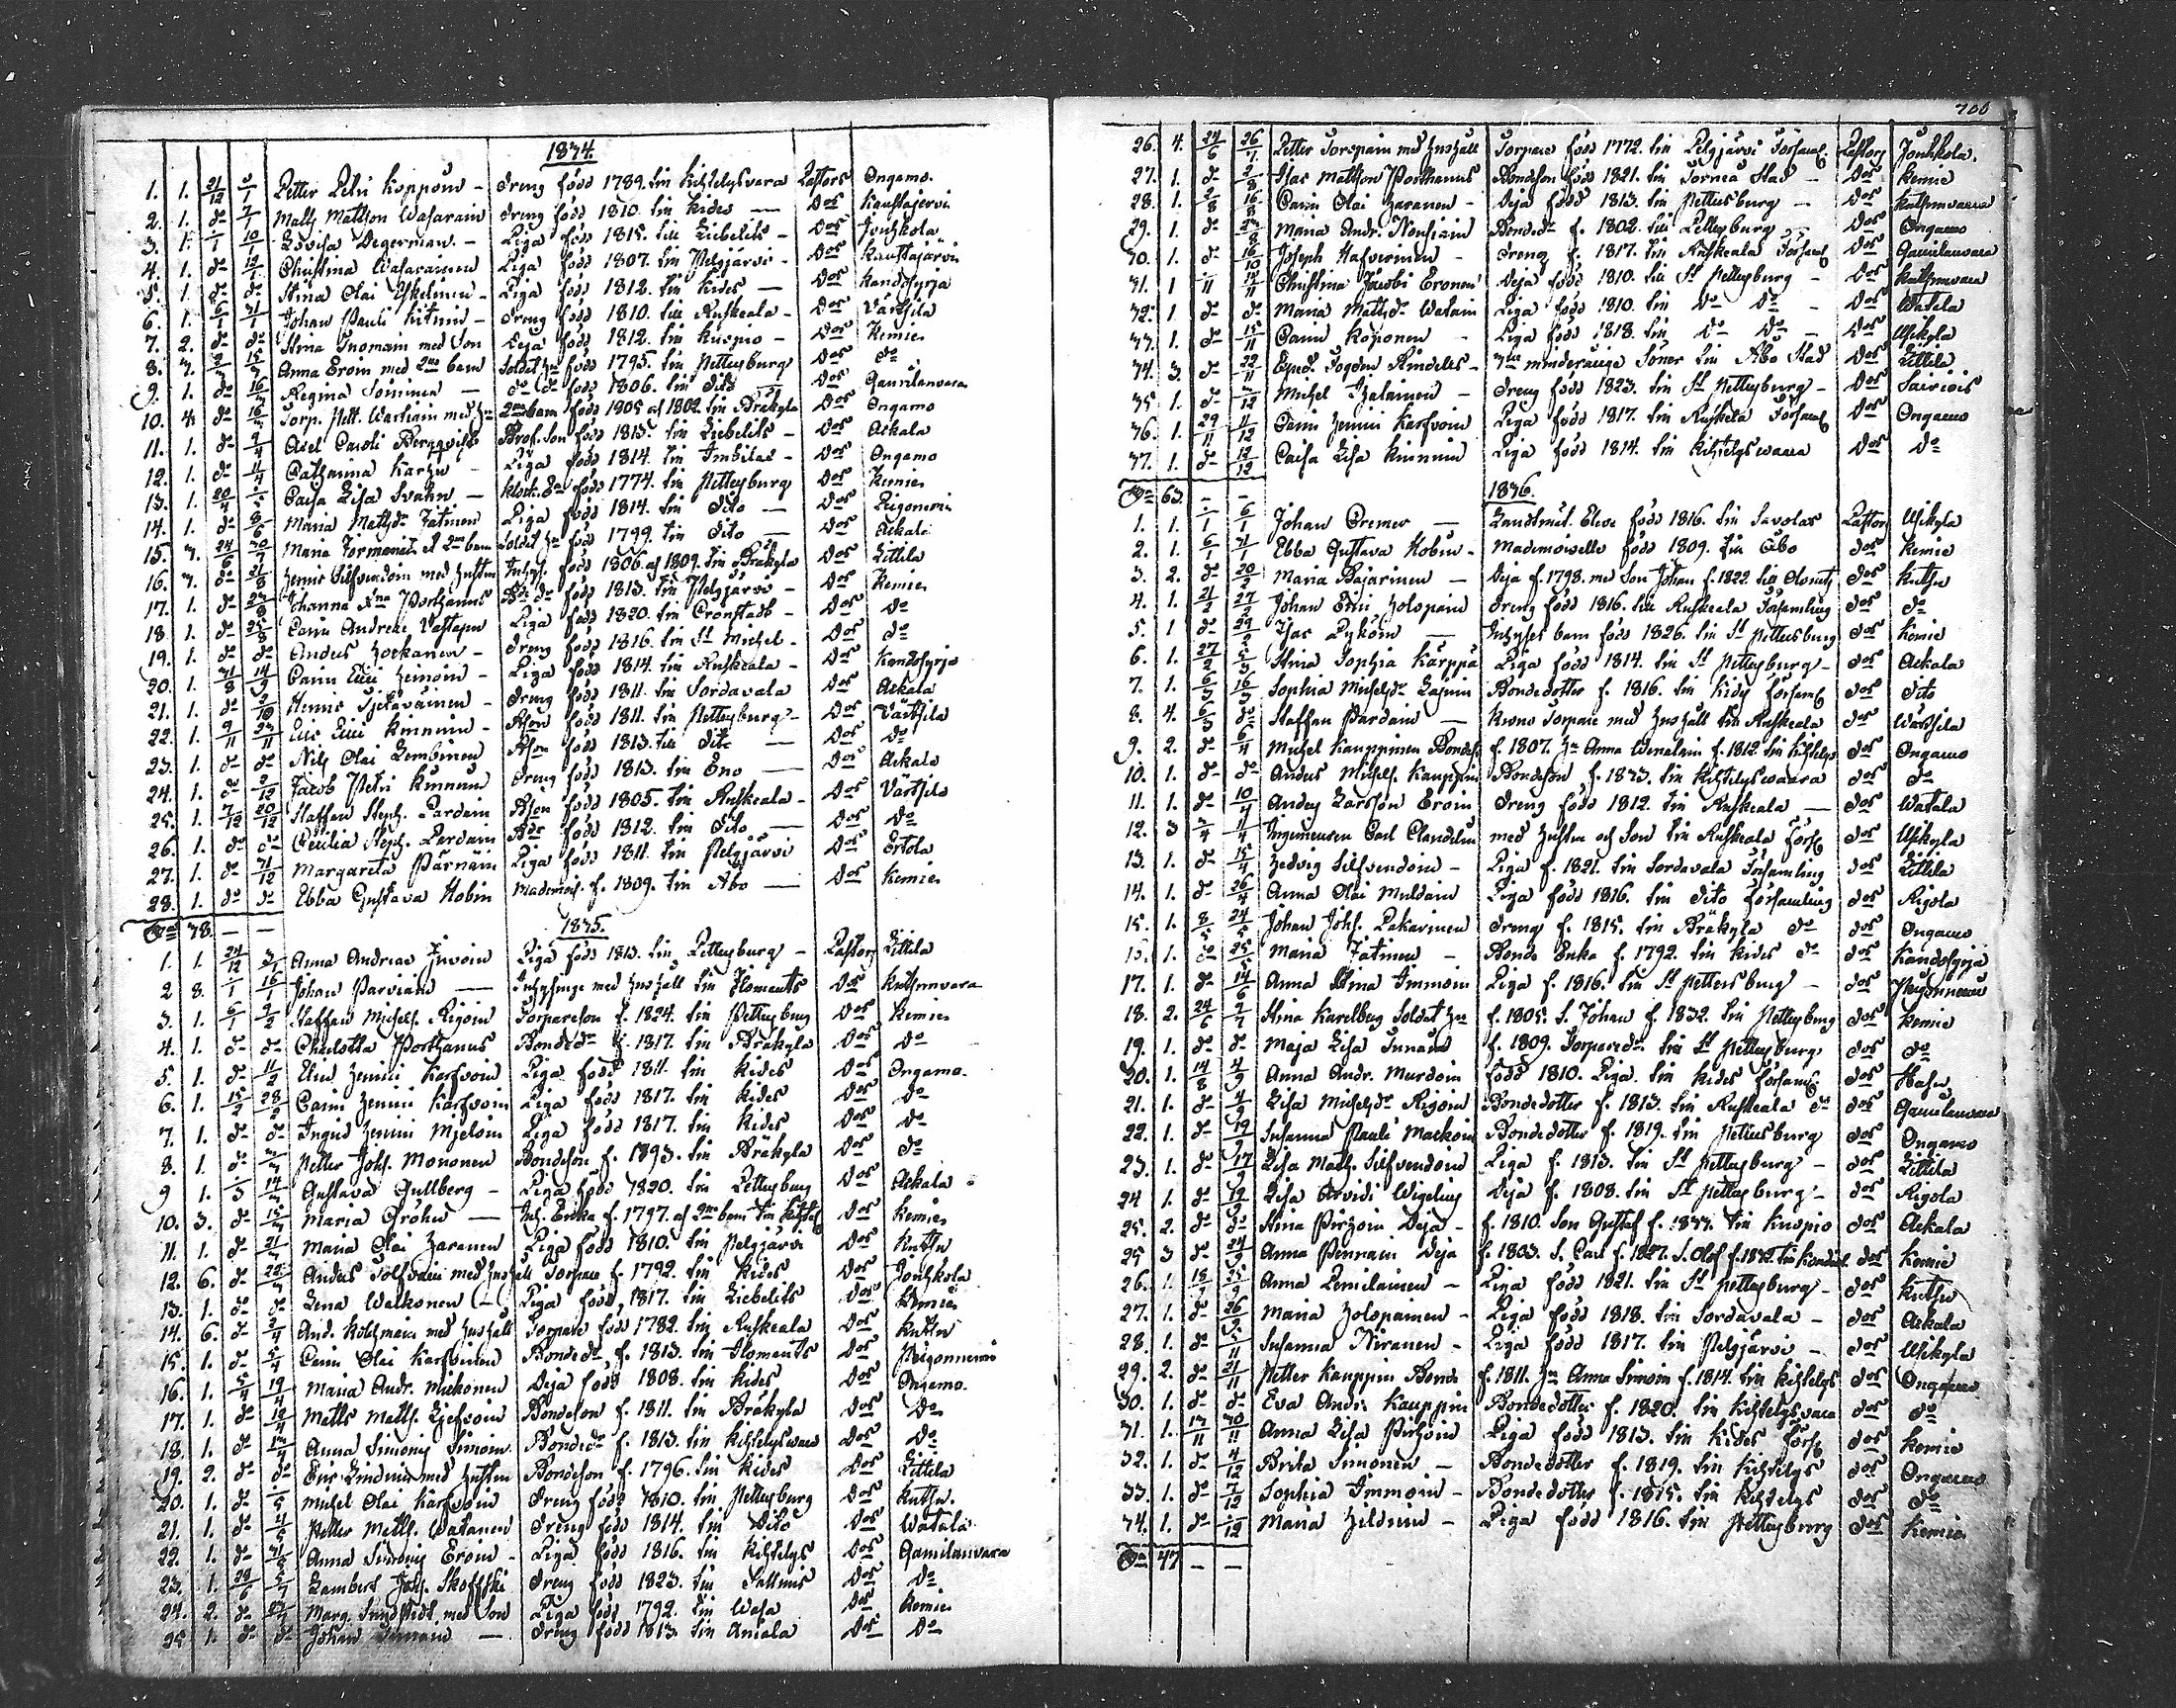 1834.
1. 1. 21/12 Petter Petri Koppoin - Dreng född 1789. tin Kihtelysvara Pastors Ongamo.
2. 1. do Matts Mattson Wasarain Dreng född 1810. tin Kides — Dos Kaustajervi
3. 1. 10/1 Lovisa Degerman. - Piga född 1815. till Liebelits - Dos Jouhkola
4. 1. do 12/1 Christina Wasarainen Piga född 1807. tin Pelgjärvi - Dos Kaustajärvi
5. 1. do do Stina Olai Eskelinen - Piga född 1812. tin Kides — Dos Kandosyrja
6. 1. 6/1 31/1 Johan Pauli Kitunin - Dreng född 1810. till Ruskeala - Dos Värtsila
7. 2. do do Stina Tuomain med Son Deja född 1812. tin Kuopio - Dos Kemie
8. 3. Anna Eroin med 2ne barn Soldat Hu född 1795. tin Pettersburg Dos do
9. 1. do 16/3 Regina Soininen — do do född 1806. tin dito — Dos Gamilanvara
10. 4. do 16/3 Torp. Pett. Wartiain med Hu 2ne barn född 1805 och 1802. tin Bräkyla Dos Ongamo
11. 1. do 9/4 Axel Caroli Bergqvist Prof. Son född 1813. tin Liebelits - Dos Aekala
12. 1. do 11/4 Catharina Karhu - Piga född 1814. tin Imbilax - Dos Ongamo
13. 1. 20/4 Caisa Lisa Svahn — född 1774. tin Pettersburg Dos Kemie
14. 1. do 8/6 Maria Matts dr Jatinen Piga född 1814. tin dito — Dos Peigonemi
15. 3. 24/6 Maria Formanen et 2ne barn Soldat Hu född 1799. tin dito — Dos Aekala
16. 3. do 21/8 Henric Silfvendoin med Hustru Inhys. född 1806 och 1809. tin Bräkyla Dos Littila
17. 1. do Johanna Porthanus född 1813. tin Pelgjärvi - Dos Kemie
18. 1. do 25/8 Carin Andreae Vattapu Piga född 1820. tin Cronstadt - Dos Do
19. 1. do do Anders Hockanen - Dreng född 1816. tin St Michel - Dos do
20. 1. 31/8 14/9 Carin Erici Heinoin - Piga född 1814. tin Ruskeala - Dos Kandosyrja
21. 1. do Henric Tjetäväinen - Dreng född 1811. tin Sordavala Dos Aekala
22. 1. 9/11 Eric Erici Kinnunin - född 1811. tin Pettersburg - Dos Värtsila
23. 1. do do Nils Olai Lembinen född 1813. till dito — Dos Do
24. 1. do 9/12 Jacob Petri Kinnunin Dreng född 1813. tin Eno — Dos Aekala
25. 1. 7/12 20/12 Staffan Steph. Pardain född 1805. tin Ruskeala - Dos Värtsila
26. 1. do do Cecilia Steph. Pardain född 1812. tin dito — Dos do
27. 1. do 31/12 Margareta Pärnäin Piga född 1811. tin Pelgjärvi Dos Ertola
28. 1. do do Ebba Gustava Hobin Mademois. f. 1809. tin Abo — Dos Kemie
38. — —
1835.
1. 1. 24/12 Anna Andreae Juvoin Piga född 1813. tin Pettersburg - Pastors Littila
2 8. 1/1 16/1 Johan Parviain — Inhysinge med Hushåll tin Iloments Dos Kutsunvara
3. 1. 6/1 Staffan Michels. Rigoin Torpareson f. 1824. tin Pettersburg Dos Kemie
4. 1. do do Charlotta Porthanus Bonde dr f. 1817. tin Bräkyla Dos do
5. 1. do 11/2 Elin Henrici Karfvoin Piga född 1811. tin Kides Dos Ongamo.
6. 1. 15/2 28/2 Carin Henrici Karfvoin Piga född 1817. tin Kides Dos do
7. 1. do do Ingrid Henrici Mjeloin Piga född 1817. tin Kides Dos do
8. 1. do Petter Johs. Mononen Bondeson f. 1893. tin Bräkyla Dos do
9 1. 14/3 Gustava Gullberg - Piga född 1820. tin Pettersburg Dos Aekala
10. 3. do 15/3 Maria Gröhn — Inh. Enka f. 1797. och 2ne barn tin Kihtels Dos Kemie
11. 1. do 21/3 Maria Olai Haranen Piga född 1810. tin Pelgjärvi Dos Kutsu
12. 6. do 22/3 Anders Tolfvain med Hushåll Torpare f. 1792. tin Kides Dos Jouhkola
13. 1. do do Lena Walkonen — Piga född 1817. tin Liebelits Dos Kemie
14. 6. do And. Kohlmain med Hushåll Torpare född 1782. tin Ruskeala Dos Kutsu
15. 1. do Carin Olai Karfvinen Bonde dr f. 1813. tin Iloments Dos Peigonnemi
16. 1. 5/4 19/4 Maria Andr. Mickonen Deja född 1808. tin Kides Dos Ongamo.
17. 1. do Matts Matts. Ljefvoin Bondeson f. 1811. tin Bräkyla Dos do
18. 1. do Anna Simonis Simoin Bonde dr f. 1813. tin Kihtelyswara Dos do
19. 2. do do Eric Lindwin med Hustru Bondeson f. 1796. tin Kides Dos Littila
20. 1. do Michel Olai Karfvoin Dreng född 1810. tin Pettersburg Dos Kutsu.
21. 1. do Petter Matts. Watanen Dreng född 1814. tin Dito Dos Watala
22. 1. do Anna Eroin - Piga född 1816. tin Kihtelys Dos Gamilanvara
23. 1. Lambert Johs. Skoffski Dreng född 1823. tin Sallmis Dos do
24. 2. do Marg. Sundstedt med Son Piga född 1792. tin Wasa Dos Kemie
25 1. do do Johan — Dreng född 1813. tin Aniala Dos do
700
26. 4. 24/6 26/7 Petter Torspain med Hushåll Torpare född 1772. tin Pelgjärvi Församl. Pastors Jouhkola.
27. 1. do Isac Mattson Porthanus Bondeson född 1821. tin Torneå Stad - Dos Kemie
28. 1. 2/8 16/8 Carin Olai Haranen - Deja född 1813. tin Pettersburg - Dos Kutsunvaara
29. 1. do Maria Andr. Nousiain Bonde dr f. 1802. till Pettersburg - Dos Ongamo
30. 1. do 16/10 Joseph Hafverinen - Dreng f. 1817. tin Ruskeala Församl. Dos Gamilanvara
31. 1 Christina Jacobi Eronen Deja född 1810. till St Pettersburg - Dos Kutsunvara
32. 1. do do Maria Matts dr Watain Piga född 1810. tin Do Do - Dos Watala
33. 1. do 15/11 Carin Koponen - Piga född 1818. tin Do Do - Dos Uskyla
34. 3. do 22/11 Exped. Fogden Kindelts - 3ne minderåriga Söner tin Åbo Stad Dos Littila
35. 1. do Michel Ihalainen - Dreng född 1823. tin St Pettersburg - Dos Sairiois
36. 1. 29/11 Carin Henrici Karfvoin Piga född 1817. tin Ruskela Församl. Dos Ongamo
37. 1. do 12/12 Caisa Lisa Kinnunin Piga född 1814. tin Kihtelyswaara Dos Do
63. - -
1836.
1. 1. 1/1 6/1 Johan Cremer — Landtmät. Elev född 1816. tin Savolax Pastor Uskyla
2. 1. 6/1 31/1 Ebba Gustava Hobin - Mademoiselle född 1809. tin Åbo dos Kemie
3. 2. do 20/2 Maria Bajarinen — Deja f. 1798. med Son Johan f. 1822. till Olonetz dos Kutsu
4. 1. 21/2 27/2 Johan Erici Holopain Dreng född 1816. till Ruskeala Församling dos do
5. 1 do Isac Pyköin — Inhyses barn född 1826. tin St Pettersburg dos Kemie
6. 1. 27/2 Stina Sophia Kärppä Piga född 1814. tin St Pettersburg - dos Aekala
7. 1. 6/3 16/3 Sophia Michels dr Lasunin Bondedotter f. 1816. tin Kides Församl. dos dito
8. 4. 6/3 do Staffan Pardain — Krono Torpare med Hushåll tin Ruskeala dos Wärtsila
9. 2. do 6/4 Michel Kauppinen Bondes. f. 1807. Hu Anna Wenalain f. 1812. tin Kihtelys dos Ongamo
10. 1. do do Anders Michels. Kauppin Bondeson f. 1833. tin Kihtelyswaara dos do
11. 1. do 10/4 Anders Larsson Eroin Dreng född 1812. tin Ruskeala — dos Watala
12. 3 11/4 Ingenieuren Carl Clandelin med Hustru och Son tin Ruskeala Förs. dos Uskyla
13. 1. do 15/4 Hedvig Silfvendoin - Piga f. 1821. tin Sordavala Församling dos Littila
14. 1. do 26/4 Anna Olai Muldain Piga född 1816. tin dito Församling dos Rigola
15. 1. 8/5 24/5 Johan Johs. Pakarinen Dreng f. 1815. tin Bräkyla do dos Ongamo
16. 1. do 25/5 Maria Jatinen - Bonde Enka f. 1792. tin Kides do dos Kandosyrja
17. 1. do 14/6 Anna Stina Immoin Piga f. 1816. tin St Pettersburg - dos Peigonnemi
18. 2. 24/6 Stina Karelberg Soldat Hu f. 1805. S. Johan f. 1832. tin Pettersburg dos Kemie
19. 1. do do Maja Lisa Tunain f. 1809. Torpare dr tin St Pettersburg dos do
20. 1. 14/8 4/9 Anna Andr. Murdoin född 1810. Piga. tin Kides Församl. dos Hasu
21. 1. do 4/9 Lisa Michels dr Rigoin Bondedotter f. 1813. tin Ruskeala do dos Gamilanvara
22. 1. do Susanna Pauli Mackoin Bondedotter f. 1819. tin Pettersburg dos Ongamo
23. 1. do 17/9 Lisa Matts. Silfvendoin Piga f. 1813. tin St Pettersburg - dos Littila
24 1. do Lisa Arvidi Wigelius Deja f. 1808. tin St Pettersburg - dos Rigola
25. 2. do do Stina Pirhoin Deja - f. 1810. Son Gustaf f. 1833. tin Kuopio dos Aekala
25 3 do 24/9 Anna Pennain Deja f. 1803. S. Carl f. 1827. S. Olof f. 1832 tin dos Kemie
26. 1. 25/9 Anna Lemilainen - Piga född 1821. tin St Pettersburg - dos Kutsu
27. 1. do 26/9 Maria Holopainen - Piga född 1818. tin Sordavala - dos Aekala
28. 1. do Susanna Kiranen - Piga född 1817. tin Pelgjärvi - dos Uskyla
29. 2. do 21/11 Petter Kauppin Bonde f. 1811. Hu Anna Simoin f. 1814. tin Kihtelys dos Ongamo
30. 1. do do Eva Andr. Kauppin Bondedotter f. 1820. tin Kihtelysvara dos do
31. 1. 13/11 30/11 Anna Lisa Pirhoin Piga född 1813. tin Kides Förs. dos Kemie
32. 1. do 4/12 Brita Simonen — Bondedotter f. 1819. tin Kihtelys dos Ongamo
33. 1. do 7/12 Sophia Immoin - Bondedotter f. 1815. tin Kihtelys dos do
34. 1. do Maria Hildnin - Piga född 1816. tin Pettersburg dos Kemie
47 — —